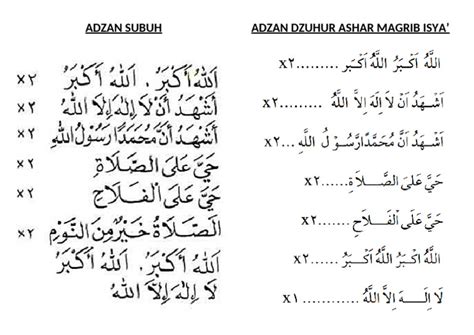 ADZAN SUBUH
اَللّٰهُ أَكْبَرُ ، اَللّٰهُ أَكْبَرُ x٢
أَشْهَدُ أَنْ لَا إِلٰهَ إِلَّا اللّٰهُ x٢
أَشْهَدُ أَنَّ مُحَمَّدًا رَسُوْلُ اللّٰهِ x٢
حَيَّ عَلَى الصَّلَاةِ x٢
حَيَّ عَلَى الْفَلَاحِ x٢
الصَّلَاةُ خَيْرٌ مِنَ النَّوْمِ x٢
اَللّٰهُ أَكْبَرُ ، اَللّٰهُ أَكْبَرُ
لَا إِلٰهَ إِلَّا اللّٰهُ
ADZAN DZUHUR ASHAR MAGRIB ISYA’
اللَّهُ اَكْبَرُ اللَّهُ اَكْبَر ..........x٢
اَشْـهَدُ اَنْ لَا اِلَهَ اِلاَّ اللَّهُ .........x٢
اَشْـهَدُ اَنَّ مُحَمَّدًا رَسُـوْ لُ اللَّهِ ...x٢
حَيَّ عَلىَ الصَّـــلاَةِ......x٢
حَيَّ عَلىَ الْفَـــلاَحِ.......x٢
اللَّهُ اَكْبَرُ اللَّهُ اَكْـبَـرُ ......x٢
لَا اِلَـــهَ اِلاَّ اللَّهُ ............x١